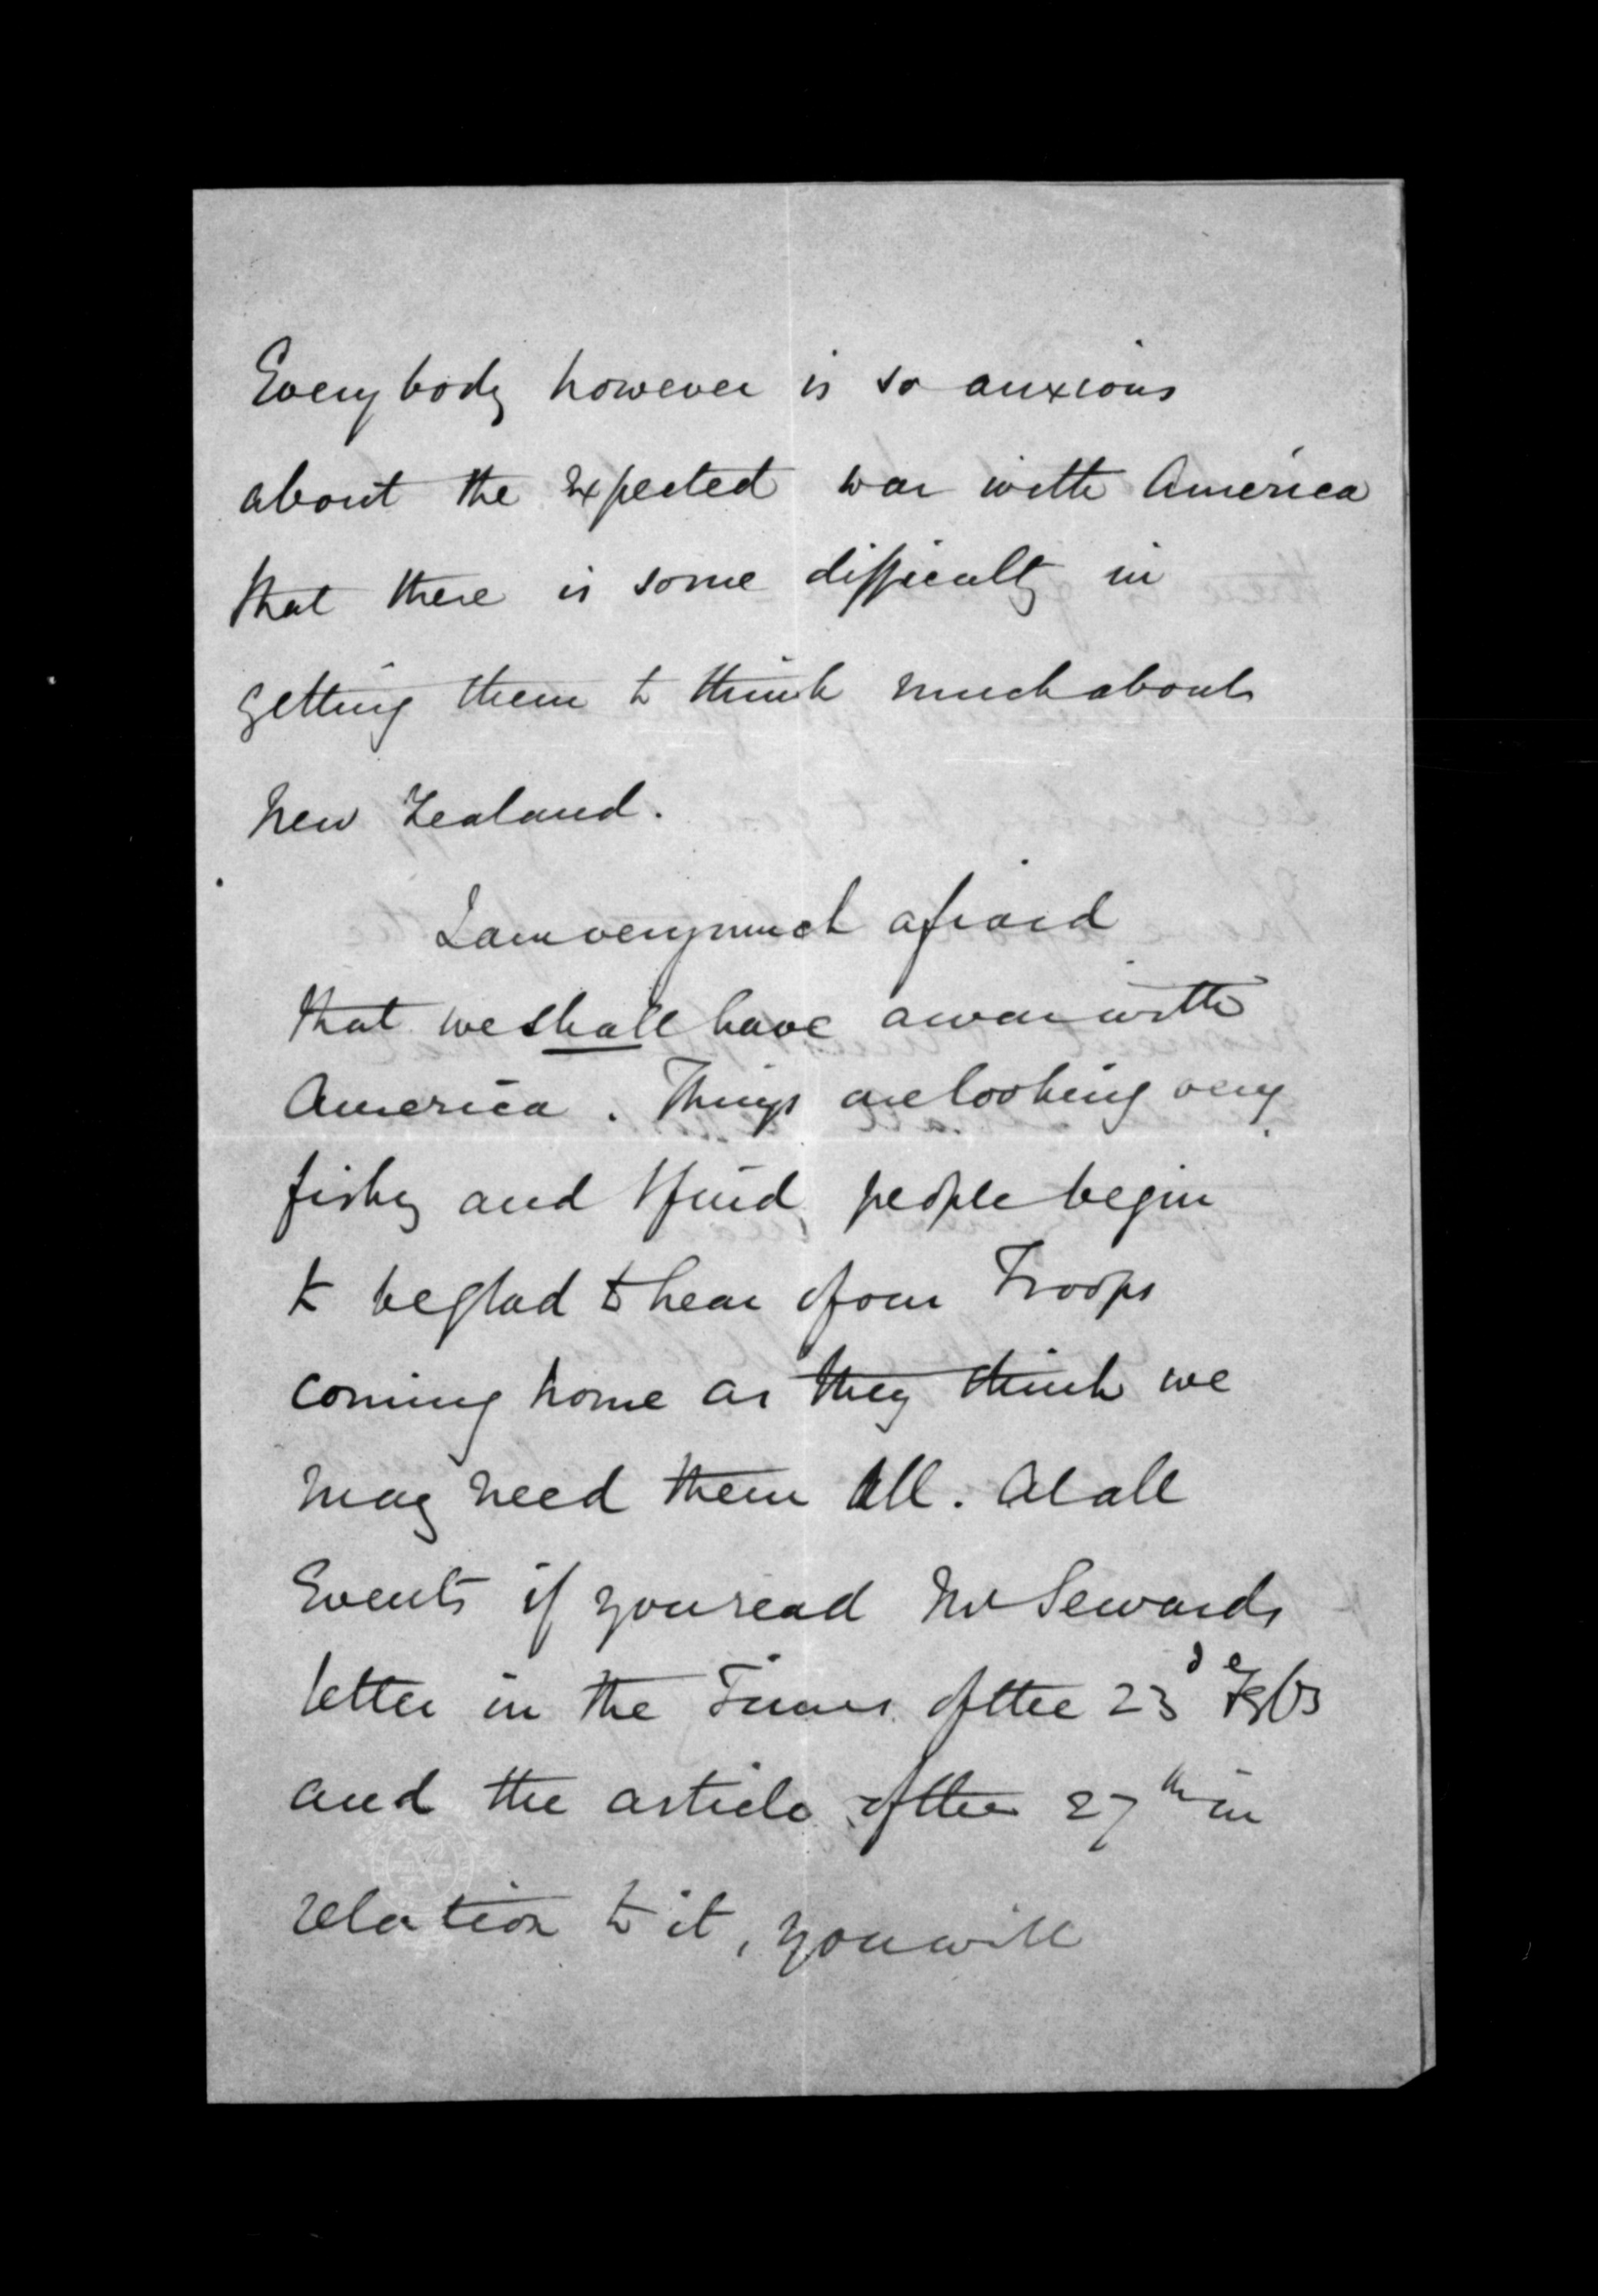 Everybody however is so anxious
about the expected war with America
that there is some difficulty in
getting them to think much about
New Zealand.
I am very much afraid
that we shall have a war with
America. Things are looking very
fishy and I find people begin
to be glad to hear of our Troops
coming home as they think we
may need them all. At all
Events if you read Mr Sewards
letter in the Times of the 23d
and the article of the 27th in
relation to it, you will